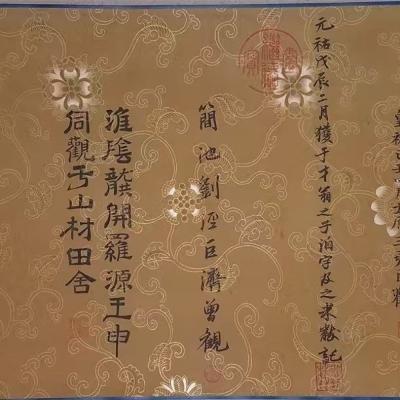 元祐戊辰二月獲于才翁之子洎字及之米黻記
簡池劉涇巨濟曾觀
淮陰龔開羅源王申
同觀于山材田舍